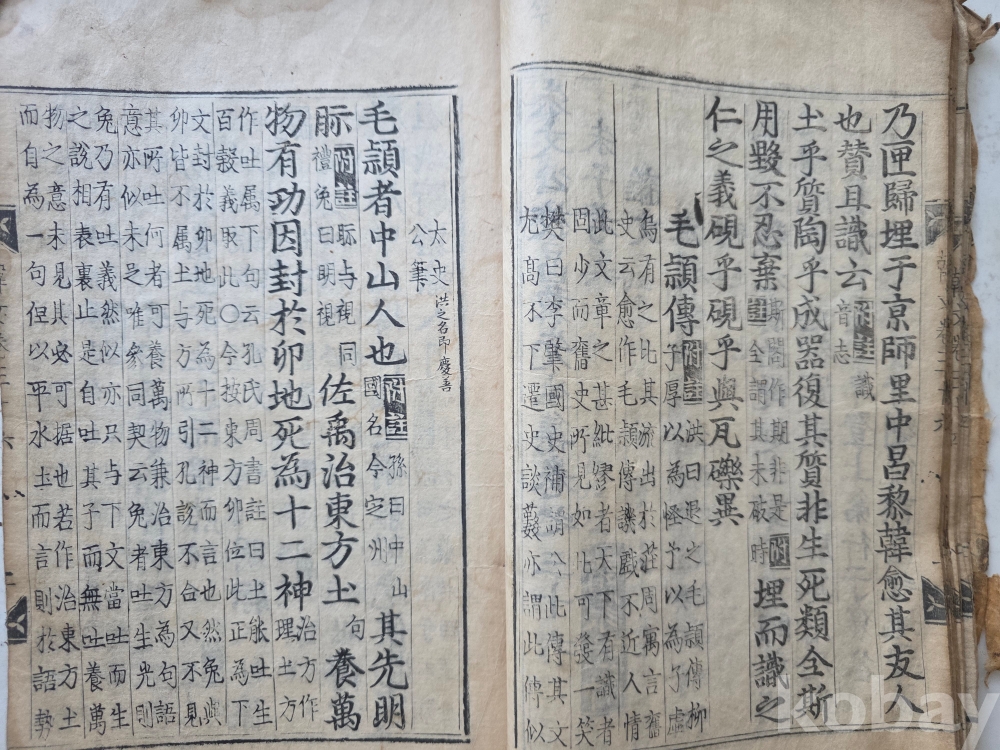 乃匣歸埋于京師里中昌黎韓愈其友人
也贊且識云附註識音志
土乎質陶乎成器復其質非生死類全斯
用毀不忍棄附註期間作期非是全謂其未破時埋而識之
仁之義硯乎硯乎與瓦礫異
毛頴傳附註洪曰退之毛頴傳柳子厚以為怪予以為子虛
烏有之比其流出於莊周寓言舊
史云愈作毛頴傳譏戲不近人情
此文章之甚紕繆者大下有識者
固少而舊史所見如此可發一笑
樊曰李肇國史補謂公此傳其文
尤高不下遷史談藪亦謂此傳似
太史公筆洪之名即慶善
毛頴者中山人也附註孫曰中山國名今定州其先明
眎附註眎与視同禮兔曰明視佐禹治東方土句養萬
物有功因封於卯地死為十二神治方作理土方
作吐属下句云孔氏周書註曰土能吐生
百穀義取此〇今按東方卯位此正為下
文封於卯地死為十二神而言也然兔與
卯皆不属土与方所引孔說不合又不見
其所吐何者可養萬物兼治東方為句語
意亦似未足唯參同契云兔者吐生光則
兔乃有吐義然似亦只与下文當吐而生
之說相表裏止是自吐其子而無吐養萬
物之意未見其必可据也若作治東方土
而自為一句但以平水土而言則於語勢
kobay